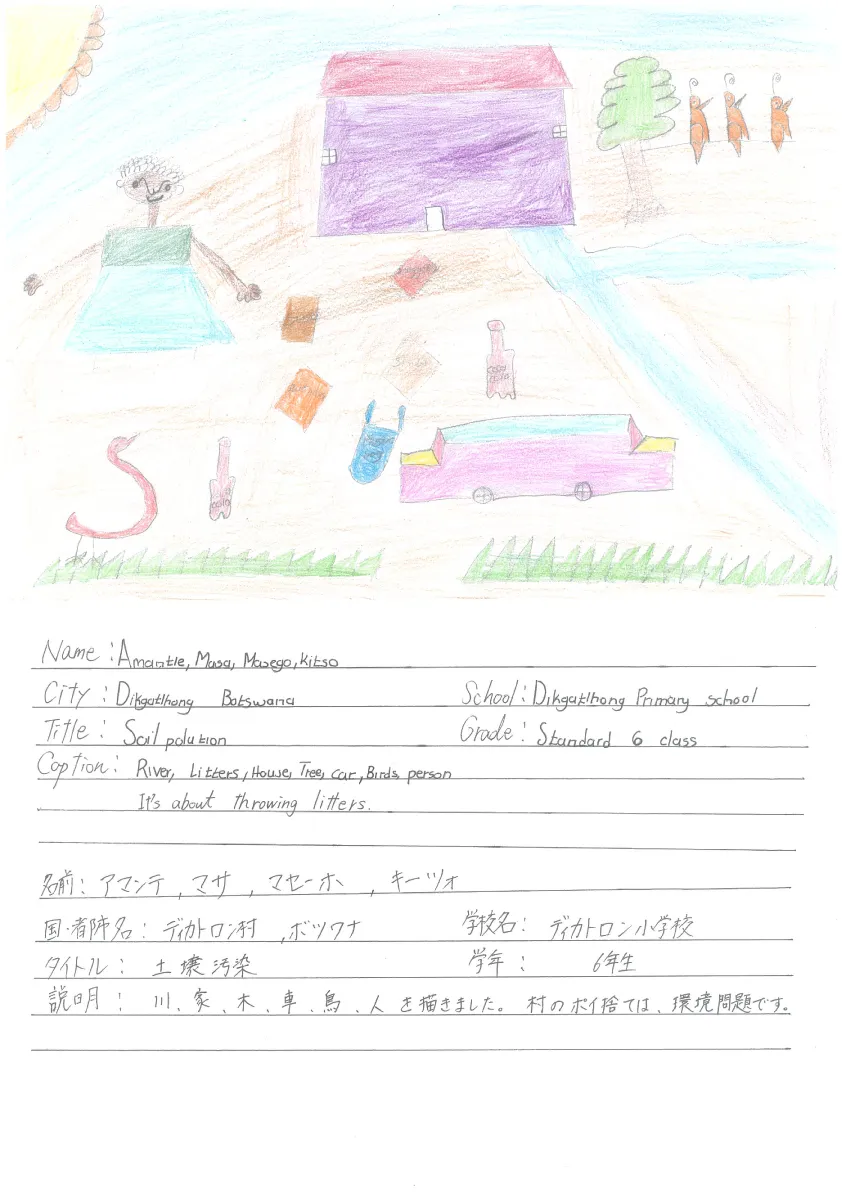 Name: Amantle, Masa, Masego, Kitso
City: Dikgatlhong Botswana
School: Dikgatlhong Primary school
Title: Soil polution
Grade: Standard 6 class
Caption: River, Litters, House, Tree, car, Birds, person
It's about throwing litters.
名前: アマンテ, マサ, マセーホ, キーツォ
国・都市名: ディカトロン村, ボツワナ
学校名: ディカトロン小学校
タイトル: 土壌汚染
学年: 6年生
説明: 川、家、木、車、鳥、人を描きました。村のポイ捨ては、環境問題です。